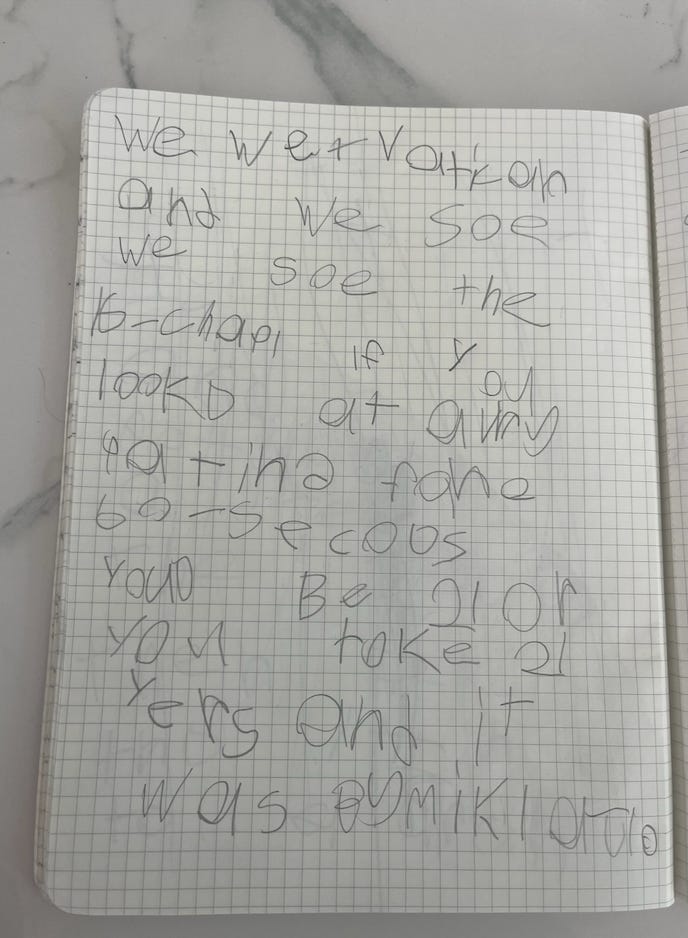 We wet Vatikan
and we soe
we soe the
16-chapl if you
lookD at avry
patind fohe
60-secoDs
youD Be 21 or
you toke 21
yers and it
was By mikl